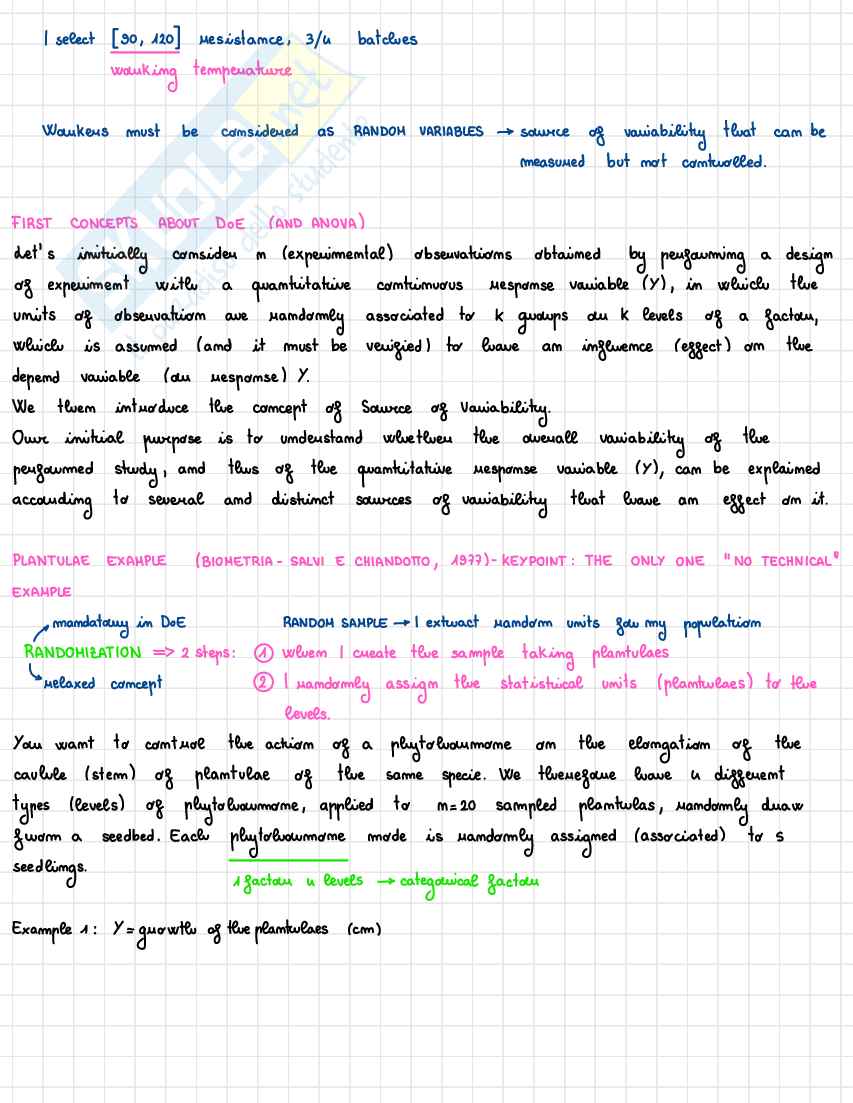 I select [90, 120] resistance, 3/4 batches
working temperature
Workers must be considered as RANDOM VARIABLES → source of variability that can be
measured but not controlled.
FIRST CONCEPTS ABOUT DoE (AND ANOVA)
Let's initially consider n (experimental) observations obtained by performing a design
of experiment with a quantitative continuous response variable (Y), in which the
units of observation are randomly associated to k groups or k levels of a factor,
which is assumed (and it must be verified) to have an influence (effect) on the
depend variable (or response) Y.
We then introduce the concept of Source of Variability.
Our initial purpose is to understand whether the overall variability of the
performed study, and thus of the quantitative response variable (Y), can be explained
according to several and distinct sources of variability that have an effect on it.
PLANTULAE EXAMPLE (BIOMETRIA - SALVI E CHIANDOTTO, 1977) - KEYPOINT: THE ONLY ONE "NO TECHNICAL"
EXAMPLE
mandatory in DoE RANDOM SAMPLE → I extract random units for my population
RANDOMIZATION => 2 steps: 1 when I create the sample taking plantulaes
relaxed concept 2 I randomly assign the statistical units (plantulaes) to the
levels.
You want to control the action of a phytohormone on the elongation of the
caulule (stem) of plantulae of the same specie. We therefore have 4 different
types (levels) of phytohormone, applied to n=20 sampled plantulas, randomly draw
from a seedbed. Each phytohormone mode is randomly assigned (associated) to 5
seedlings.
1 factor 4 levels → categorical factor
Example 1: Y = growth of the plantulaes (cm)
SKUOLA.net
il paradiso dello studente